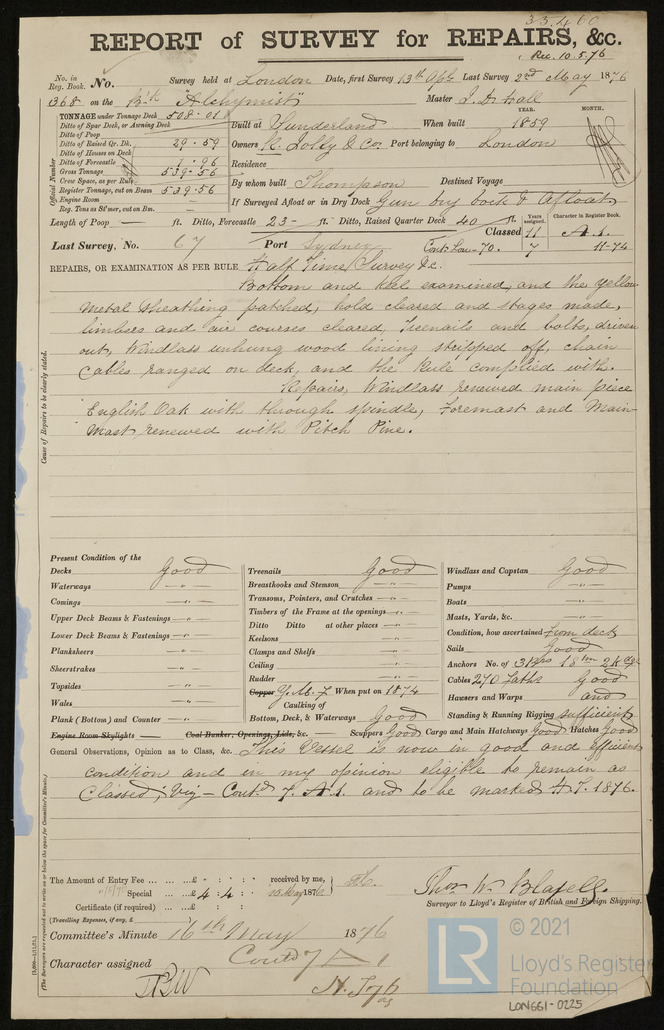 33.460
REPORT of SURVEY for REPAIRS, &c.
Rec. 10.5.76
No. in Reg. Book. No. Survey held at London Date, first Survey 13th Apl Last Survey 2nd May 1876
1368 on the Bk "Alchymist" Master J. D. Hall
TONNAGE under Tonnage Deck 508.01
Ditto of Spar Deck, or Awning Deck
Ditto of Poop
Ditto of Raised Qr. Dk. 29.59
Ditto of Houses on Deck
Ditto of Forecastle 1.96
Gross Tonnage 539.56
Crew Space, as per Rule
Register Tonnage, cut on Beam 539.56
Engine Room
Reg. Tons as St'mer, cut on Bm.
Official Number
YEAR. MONTH.
Built at Sunderland When built 1859
Owners R. Jolly & Co. Port belonging to London
Residence
By whom built Thompson Destined Voyage
If Surveyed Afloat or in Dry Dock Gun dry dock & Afloat
Length of Poop — ft. Ditto, Forecastle 23 - ft. Ditto, Raised Quarter Deck 40 ft.
Years assigned. Character in Register Book.
Classed 11 A.1.
Last Survey, No. 67 Port Sydney Cont. Lon-70. 7 11-74
REPAIRS, OR EXAMINATION AS PER RULE Half Time Survey &c.
Bottom and keel examined, and the yellow
metal sheathing patched, hold cleared and stages made,
limbers and air courses cleared, treenails and bolts, driven
out, Windlass unhung wood lining stripped off, chain
cables ranged on deck, and the Rule complied with.
Repairs, Windlass renewed main piece
English Oak with through spindle, Foremast and Main-
mast renewed with Pitch Pine.
Cause of Repairs to be clearly stated.
Present Condition of the
Decks Good
Waterways "
Comings "
Upper Deck Beams & Fastenings "
Lower Deck Beams & Fastenings "
Planksheers "
Sheerstrakes "
Topsides "
Wales "
Plank (Bottom) and Counter "
Treenails Good
Breasthooks and Stemson "
Transoms, Pointers, and Crutches "
Timbers of the Frame at the openings "
Ditto Ditto at other places "
Keelsons "
Clamps and Shelfs "
Ceiling "
Rudder "
Copper Y.M. 7 When put on 1874
Caulking of
Bottom, Deck, & Waterways Good
Windlass and Capstan Good
Pumps "
Boats "
Masts, Yards, &c. "
Condition, how ascertained From deck
Sails Good
Anchors No. of 3 Brs 1 Stm 2 Kgs
Cables 270 Faths Good
Hawsers and Warps and
Standing & Running Rigging sufficient
Engine Room Skylights — Coal Bunker, Openings, Lids, &c. — Scuppers Good Cargo and Main Hatchways Good Hatches Good
General Observations, Opinion as to Class, &c. This Vessel is now in good and efficient
condition and in my opinion eligible to remain as
Classed; Viz — Contd. 7. A.1. and to be marked H.T. 1876.
(The Surveyors are requested not to write on or below the space for Committee's Minute.)
The Amount of Entry Fee ... ... £ : : received by me,
Special ... ... £ 4 : 4 : 10 May 1876
Certificate (if required) ... £ : :
(Travelling Expenses, if any, £
Thos. W. Blakell.
Surveyor to Lloyd's Register of British and Foreign Shipping.
Committee's Minute 16th May 1876
Character assigned Contd 7 A 1
H.T. 76
© 2021
LR
Lloyd's Register
Foundation
LON661-0225